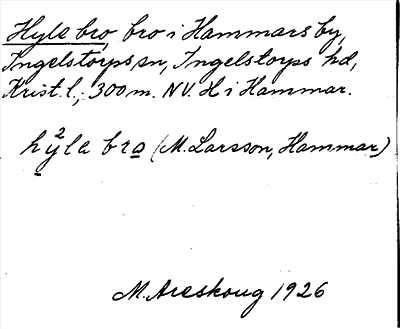 Hyle bro, bro i Hammars by,
Ingelstorps sn, Ingelstorps hd,
Krist. l.; 300 m. NV. H i Hammar.
hy̱²la bro̱ (M. Larsson, Hammar)
M. Areskoug 1926